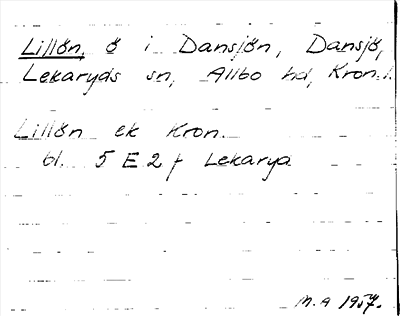 Lillön, ö i Dansjön, Dansjö,
Lekaryds sn, Allbo hd, Kron. l.
Lillön ek Kron.
bl. 5 E 2 f Lekaryd
M.A 1957.